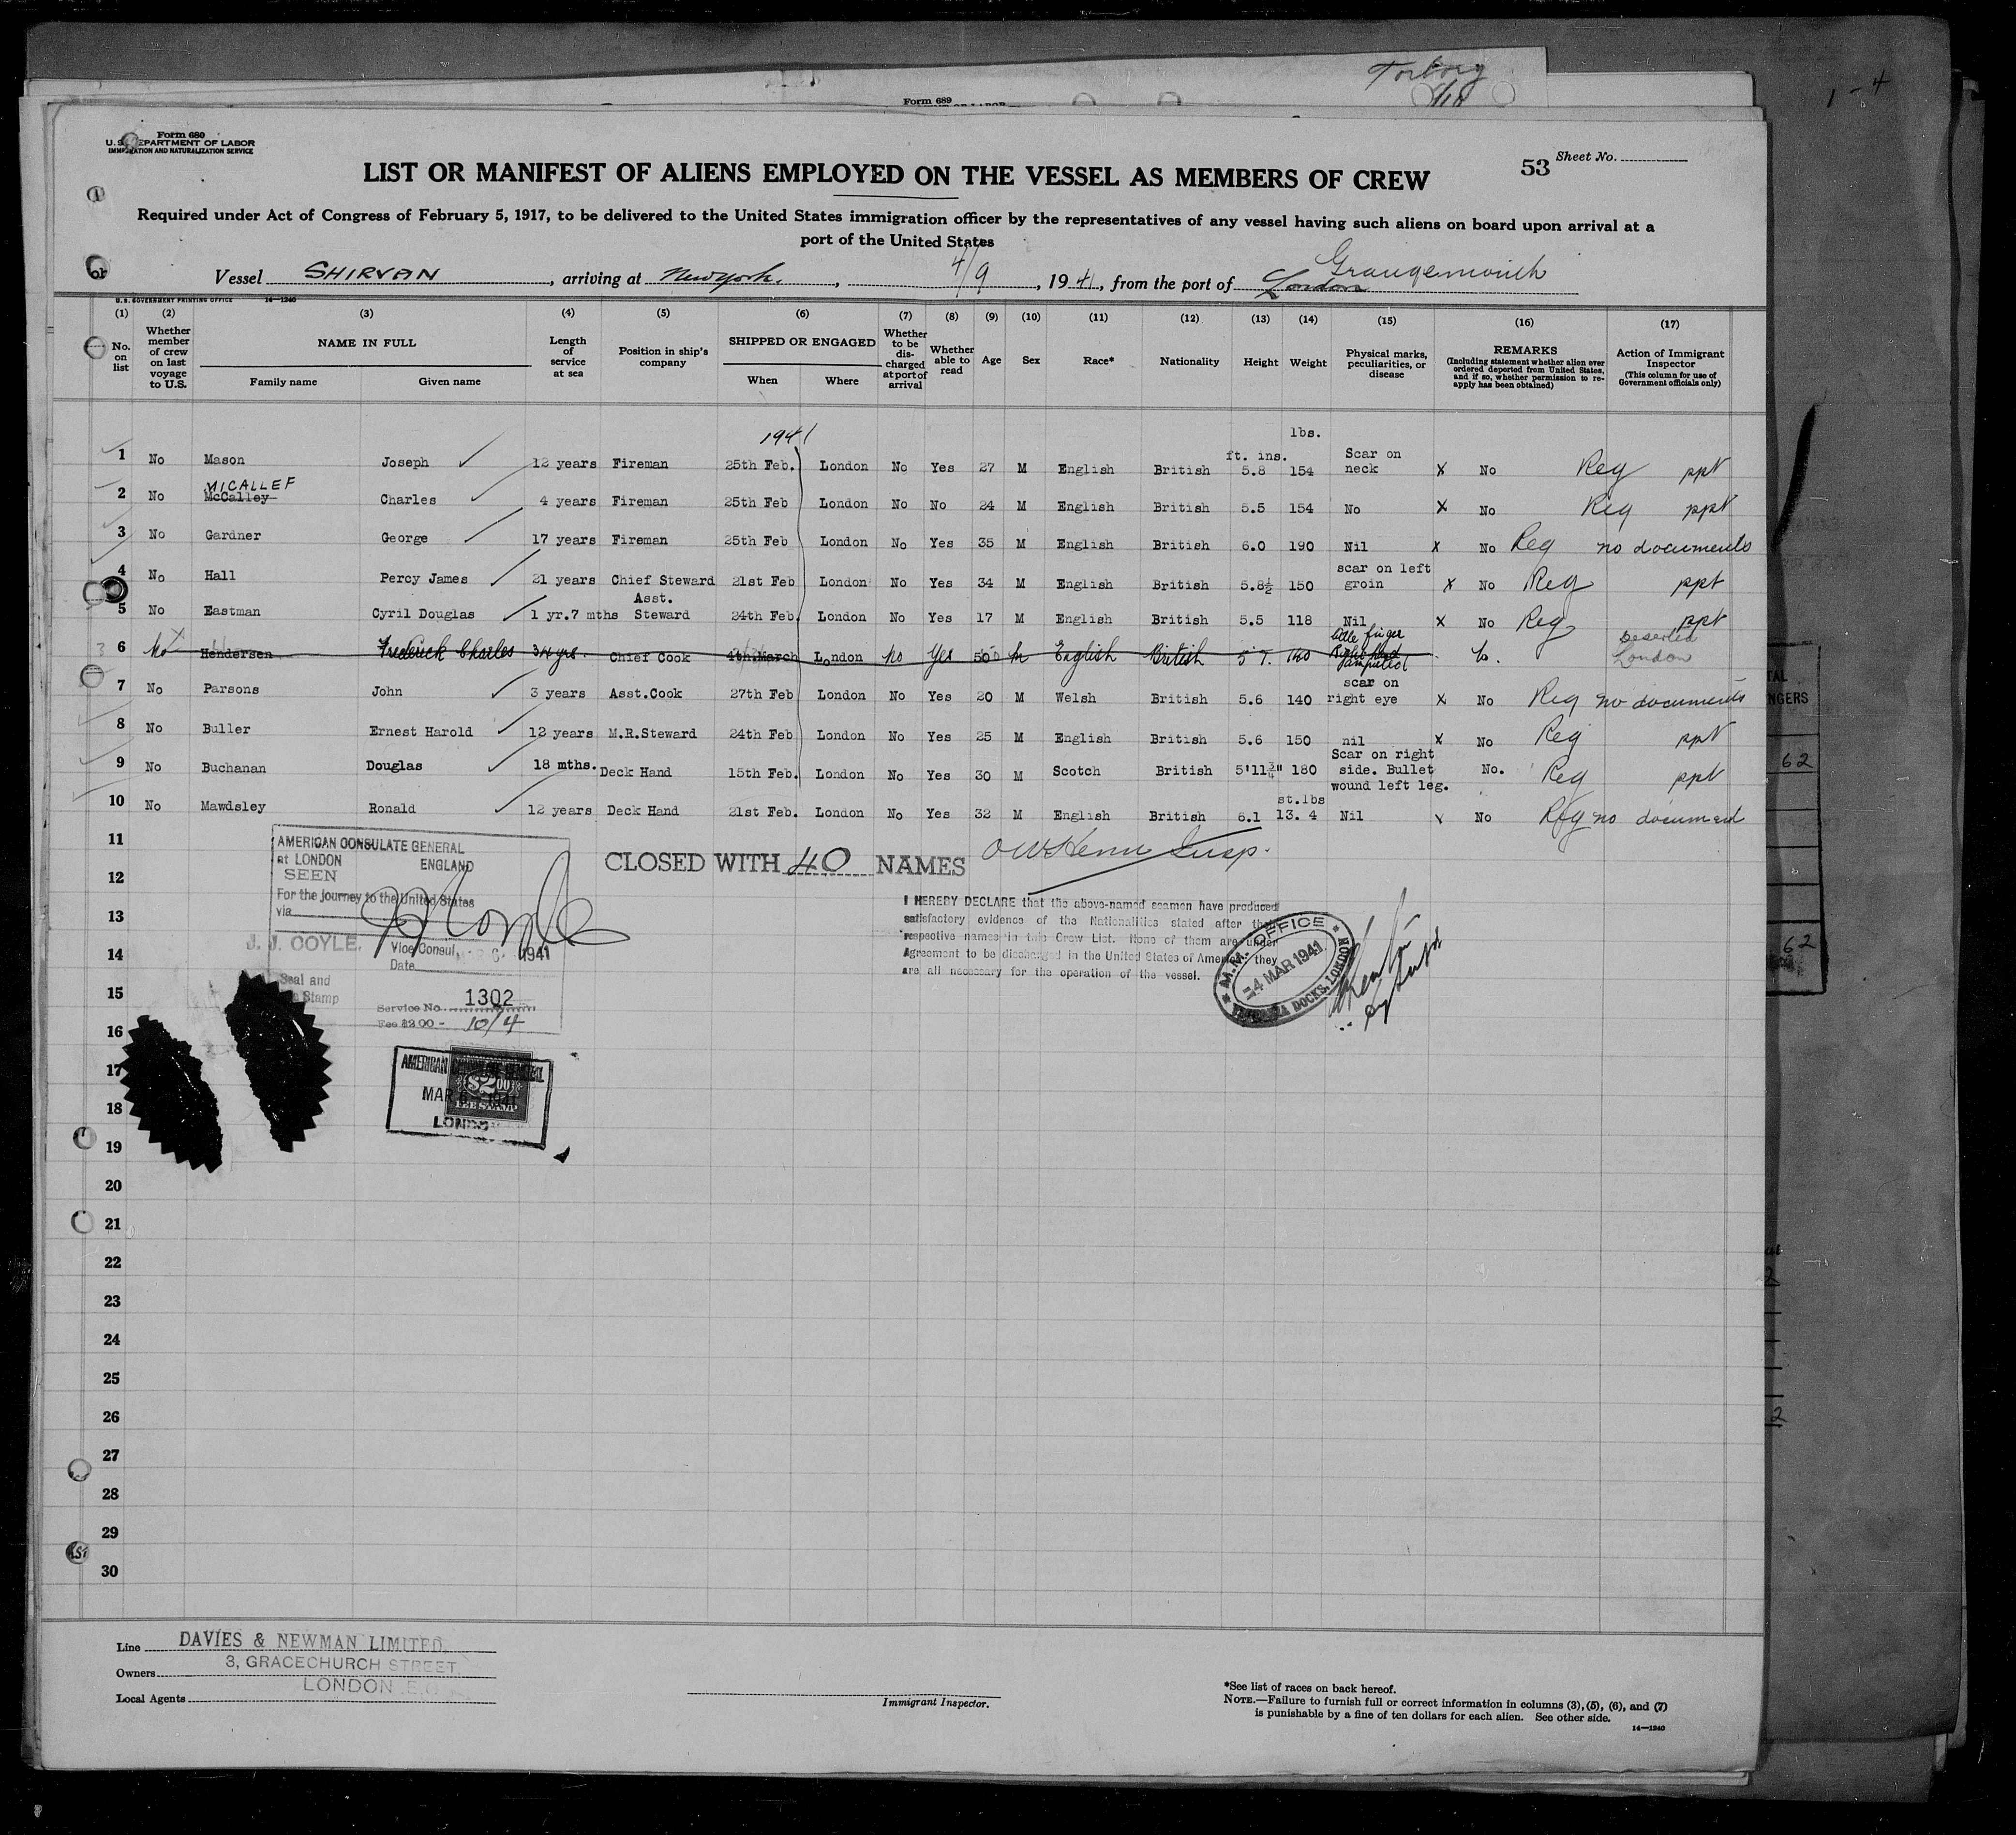 Torborg
1 - 4
Form 689
Form 680
U.S. DEPARTMENT OF LABOR
IMMIGRATION AND NATURALIZATION SERVICE
Sheet No.
53
LIST OR MANIFEST OF ALIENS EMPLOYED ON THE VESSEL AS MEMBERS OF CREW
Required under Act of Congress of February 5, 1917, to be delivered to the United States immigration officer by the representatives of any vessel having such aliens on board upon arrival at a
port of the United States
Grangemouth
Vessel SHIRVAN, arriving at New York, 4/9, 1941, from the port of London
U.S. GOVERNMENT PRINTING OFFICE 14—1240
(1) (2) (3) (4) (5) (6) (7) (8) (9) (10) (11) (12) (13) (14) (15) (16) (17)
No. on list
Whether member of crew on last voyage to U.S.
NAME IN FULL
Family name Given name
Length of service at sea
Position in ship's company
SHIPPED OR ENGAGED
When Where
Whether to be discharged at port of arrival
Whether able to read
Age
Sex
Race*
Nationality
Height
Weight
Physical marks, peculiarities, or disease
REMARKS
(Including statement whether alien ever ordered deported from United States, and if so, whether permission to reapply has been obtained)
Action of Immigrant Inspector
(This column for use of Government officials only)
1941
lbs.
ft. ins.
1 No Mason Joseph 12 years Fireman 25th Feb. London No Yes 27 M English British 5.8 154 Scar on neck X No Reg ppt
MICALLEF
2 No McCalley Charles 4 years Fireman 25th Feb London No No 24 M English British 5.5 154 No X No Reg ppt
3 No Gardner George 17 years Fireman 25th Feb London No Yes 35 M English British 6.0 190 Nil X No Reg no documents
4 No Hall Percy James 21 years Chief Steward 21st Feb London No Yes 34 M English British 5.8½ 150 scar on left groin X No Reg ppt
5 No Eastman Cyril Douglas 1 yr.7 mths Asst. Steward 24th Feb. London No Yes 17 M English British 5.5 118 Nil X No Reg ppt
6 No Hendersen Frederick Charles 34 yrs. Chief Cook 4th March London No Yes 50 M English British 5 7. 140 little finger Right hand amputed Deserted London
7 No Parsons John 3 years Asst.Cook 27th Feb London No Yes 20 M Welsh British 5.6 140 scar on right eye X No Reg no documents
8 No Buller Ernest Harold 12 years M.R.Steward 24th Feb London No Yes 25 M English British 5.6 150 nil X No Reg ppt
9 No Buchanan Douglas 18 mths. Deck Hand 15th Feb. London No Yes 30 M Scotch British 5'11¾" 180 Scar on right side. Bullet wound left leg. No. Reg ppt
st.lbs
10 No Mawdsley Ronald 12 years Deck Hand 21st Feb. London No Yes 32 M English British 6.1 13. 4 Nil No Reg no document
11
12
13
14
15
16
17
18
19
20
21
22
23
24
25
26
27
28
29
30
AMERICAN CONSULATE GENERAL
at LONDON ENGLAND
SEEN
For the journey to the United States
via
J. J. COYLE. Vice Consul
Date 1941
Seal and
Fee Stamp
Service No. 1302
Fee $2.00 - 10/4
CLOSED WITH 40 NAMES
Insp.
I HEREBY DECLARE that the above-named seamen have produced
satisfactory evidence of the Nationalities stated after their
respective names in this Crew List. None of them are under
Agreement to be discharged in the United States of America they
are all necessary for the operation of the vessel.
M.M. OFFICE
4 MAR 1941
VICTORIA DOCKS, LONDON
AMERICAN CONSULATE GENERAL
$2.00
FEE STAMP
MAR 6 - 1941
LONDON
62
62
Line DAVIES & NEWMAN LIMITED,
Owners 3, GRACECHURCH STREET,
LONDON E.C.
Local Agents
Immigrant Inspector.
*See list of races on back hereof.
NOTE.—Failure to furnish full or correct information in columns (3), (5), (6), and (7)
is punishable by a fine of ten dollars for each alien. See other side.
14—1240